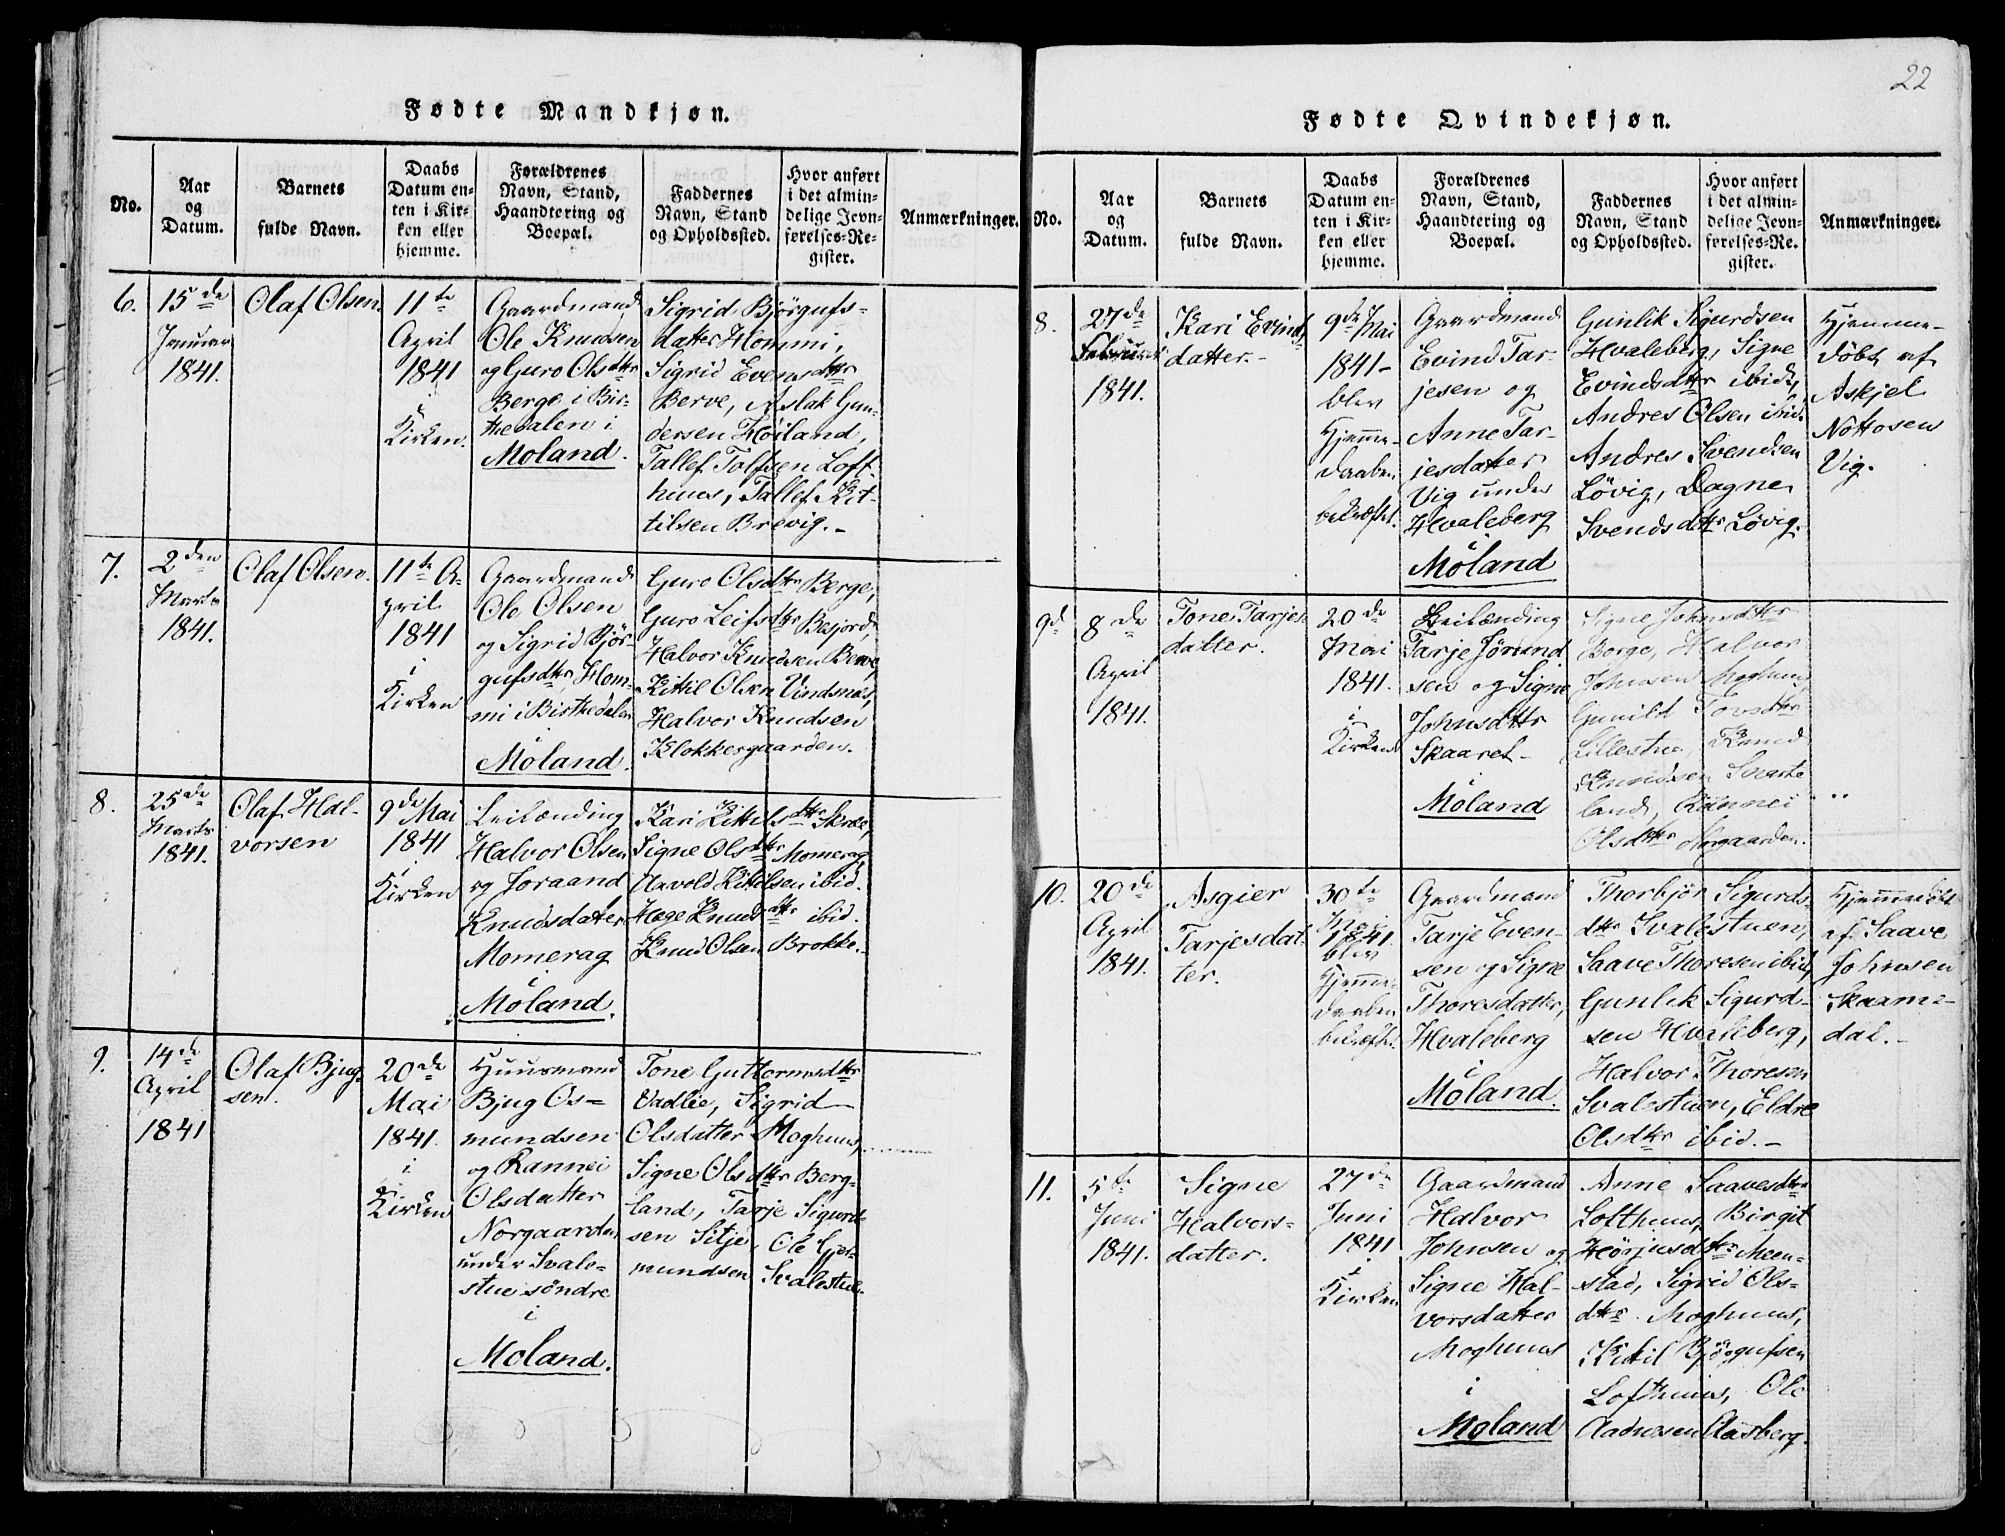 22
Fødte Mandkjøn.
No.
Aar
og
Datum.
Barnets
fulde Navn.
Daabs
Datum en-
ten i Kir-
ken eller
hjemme.
Forældrenes
Navn, Stand,
Haandtering og
Boepæl.
Faddernes
Navn, Stand
og Opholdssted.
Hvor anført
i det almin-
delige Jevn-
førelses-Re-
gister.
Anmærkninger.
6.
15de
Januar
1841.
Olaf Olsen.
11te
April
1841
i
Kirken.
Gaardmand
Ole Knudsen
og Guro Olsdttr
Berge i Bir-
tedalen i
Moland.
Sigrid Bjørgufs-
datter Hommi,
Sigrid Evensdttr
Berve, Aslak Gun-
dersen Høiland,
Tallef Tolfsen Loft-
huus, Tallef Kit-
tilsen Brevig.-
7.
2den
Marts
1841.
Olaf Olsen.
11te A-
pril
1841
i
Kirken
Gaardmand
Ole Olsen
og Sigrid Bjør-
gufsdttr Hom-
mi i Birthedalen
Moland.
Guro Olsdttr Berge,
Guro Leifsdttr Besjord,
Halvor Knudsen Berve,
Kittil Olsen Vindsnæs,
Halvor Knudsen
Klokkergaarden.
8.
25de
Marts
1841.
Olaf Hal-
vorsen
9de Mai
1841
i
Kirken
Leilænding
Halvor Olsen
og Joraand
Knudsdatter
Momerag
i
Moland.
Kari Kittilsdttr Skræe,
Signe Olsdttr Momerag,
Havold Kittilsen ibid.
Hæge Knudsdttr ibid.
Knud Olsen Brokke.
9.
14de
April
1841
Olaf Bjug-
sen.
20de
Mai
1841.
i
Kirken
Huusmand
Bjug Os-
mundsen
og Rannei
Olsdatter
Norgaarden
under Svale-
stue søndre
i
Moland.
Tone Guttormsdttr
Vadlie, Sigrid
Olsdatter Moghuus,
Signe Olsdttr Berg-
land, Tarje Sigurd-
sen Sitje, Ole Gjer-
mundsen Svalestue.
Fødte Qvindekjøn.
No.
Aar
og
Datum.
Barnets
fulde Navn.
Daabs
Datum en-
ten i Kir-
ken eller
hjemme.
Forældrenes
Navn, Stand,
Haandtering og
Boepæl.
Faddernes
Navn, Stand
og Opholdssted.
Hvor anført
i det almin-
delige Jevn-
førelses-Re-
gister.
Anmærkninger.
8.
27de
Februar
1841.
Kari Evinds
datter.-
9de Mai
1841-
blev
Hjemme-
daaben
bekræftet.
Gaardmand
Evind Tar-
jesen og
Anne Tar-
jesdatter
Vig under
Hvaleberg
i
Moland
Gunlik Sigurdsen
Hvaleberg, Signe
Evindsdttr ibid,
Andres Olsen ibid.
Andres Svendsen
Løvig, Dagne
Svendsdttr Løvig.
Hjemme-
døbt af
Askjel
Nottosen
Vig.
9d
8de
April
1841.
Tone Tarjes
datter.
20de
Mai
1841.
i
Kirken
Leilænding
Tarje Jørund
sen og Signe
Johnsdttr
Skaaret-
i
Moland
Signe Johnsdttr
Borge, Halvor
Johnsen Moghuus
Gunild Tovsdttr
Lillestue, Knud
Knudsen Svarte
land, Rannei
Olsdttr Norgaarden.
10.
20de
April
1841.
Asgier
Tarjesdat-
ter.
30te
Mai
1841.
blev
Hjemme-
daaben
bekræftet.
Gaardmand
Tarje Even-
sen og Signe
Thoresdatter,
Hvaleberg
i
Moland.
Thorbjør Sigurds-
dttr Svalestuen,
Saave Thoresen ibid,
Gunlik Sigurd-
sen Hvaleberg,
Halvor Thoresen
Svalestuen, Eldre
Olsdttr ibid.-
Hjemmedøbt
af Saave
Johnsen
Skaame-
dal.-
11.
5te
Juni
1841.
Signe
Halvors-
datter.
27de
Juni
1841
i
Kirken
Gaardmand
Halvor
Johnsen og
Signe Hal-
vorsdatter
Moghuus
i
Moland
Anne Saavesdttr
Lofthuus, Birgit
Hørjusdttr Meen-
stad, Sigrid Ols-
dttr Moghuus,
Kittil Bjørgufsen
Lofthuus, Ole
Aadnesen Aasberg.